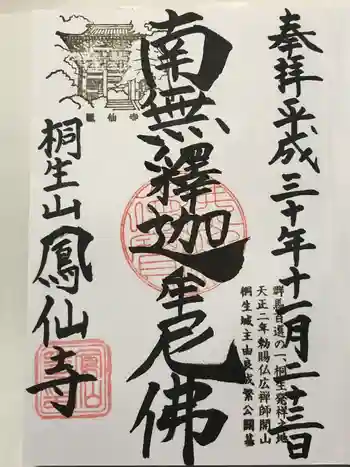 奉拝 平成三十年十一月二十三日
群馬百選の一、桐生発祥之地
天正二年勅賜仏広禅師開山
桐生城主由良成繁公開基
南無釋迦牟尼佛
鳳仙寺
桐生山 鳳仙寺